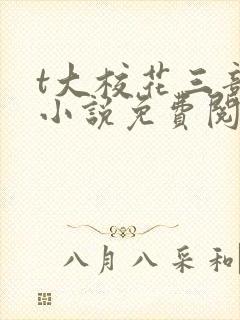 t大校花三部
小說免費閱
八月八采和